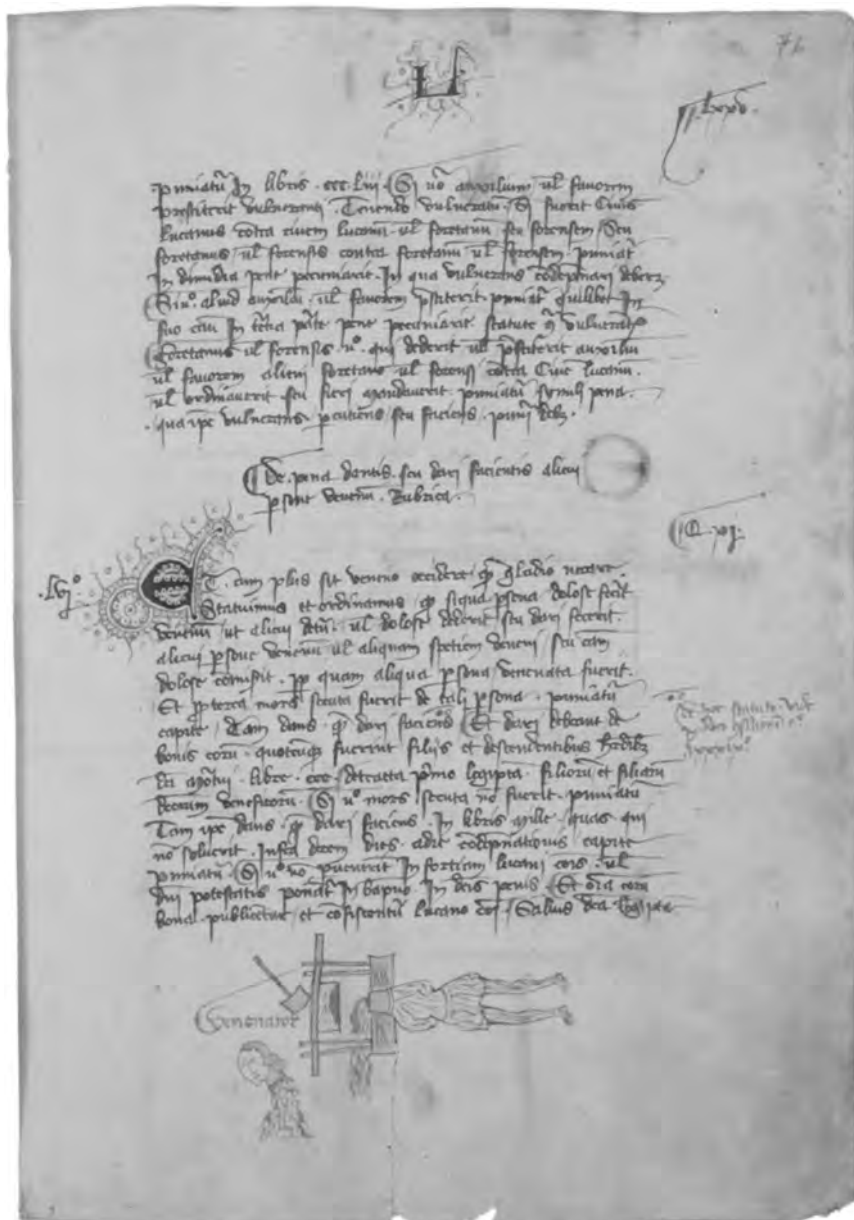 76
L
lxxv.
puniatur In libris ccc liii Si vero auxilium vel favorem
prestiterit vulneranti Tenendo vulneratum Si fuerit Civis
lucanus contra civem lucanum vel foretanum seu forensem Seu
foretanus vel forensis contra foretanum vel forensem puniatur
In dimidia pene pecuniarie In qua vulnerans condempnari debet
Si vero aliud auxilium vel favorem prestiterit puniatur quilibet In
suo casu In tertia parte pene pecuniarie statute contra vulnerantem
foretanus vel forensis vero qui dederit vel prestiterit auxilium
vel favorem alicui foretano vel forensi contra Civem lucanum
vel ordinaverit seu fieri mandaverit puniatur simili pena
qua ipse vulnerans percutiens seu faciens puniri debet
De pena dantis seu dari facientis alicui
persone venenum Rubrica
.LVJ°
ET cum plus sit veneno occidere quam gladio necare
Statuimus et ordinamus quod siqua persona dolose fecerit
venenum ut alicui detur vel dolose dederit seu dari fecerit
alicui persone venenum vel aliquam spetiem veneni seu eam
dolose commisit per quam aliqua persona venenata fuerit
Et propterea mors secuta fuerit de tali persona puniatur
capite Tam dans quam dari faciens Et dari debeant de
bonis eorum quotcumque fuerint filiis et descendentibus heredibus
dicti mortui libre ccc detracta primo legiptima filiorum et filiarum
dictorum veneficorum Si vero mors secuta non fuerit puniatur
Tam ipse dans quam dari faciens In libris mille quas qui
non solverit Infra decem dies a die condempnationis capite
puniatur Si vero non pervenerit In fortiam lucani communis vel
domini potestatis ponatur In bapno In dictis penis Et omnia eorum
bona publicentur et confiscentur lucano communi Salvis dicta legiptima
de hoc statuto
Venenator